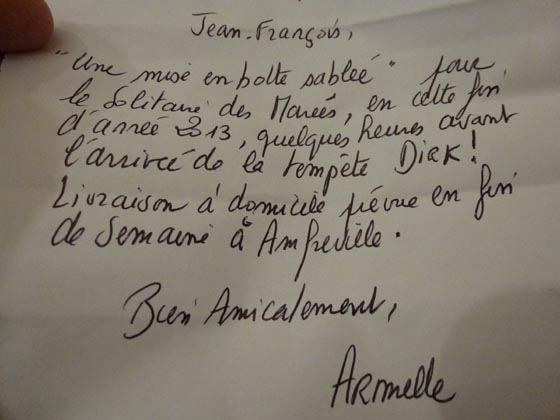 Jean-François,
"Une mise en boîte sablée" pour
le Solitaire des Marées, en cette fin
d'année 2013, quelques heures avant
l'arrivée de la tempête Dirk!
Livraison à domicile prévue en fin
de semaine à Amfreville.
Bien Amicalement,
Armelle